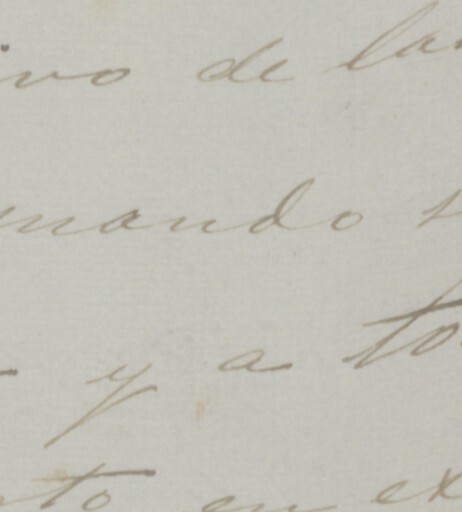 ivo de la
mando
y a to
to en ex